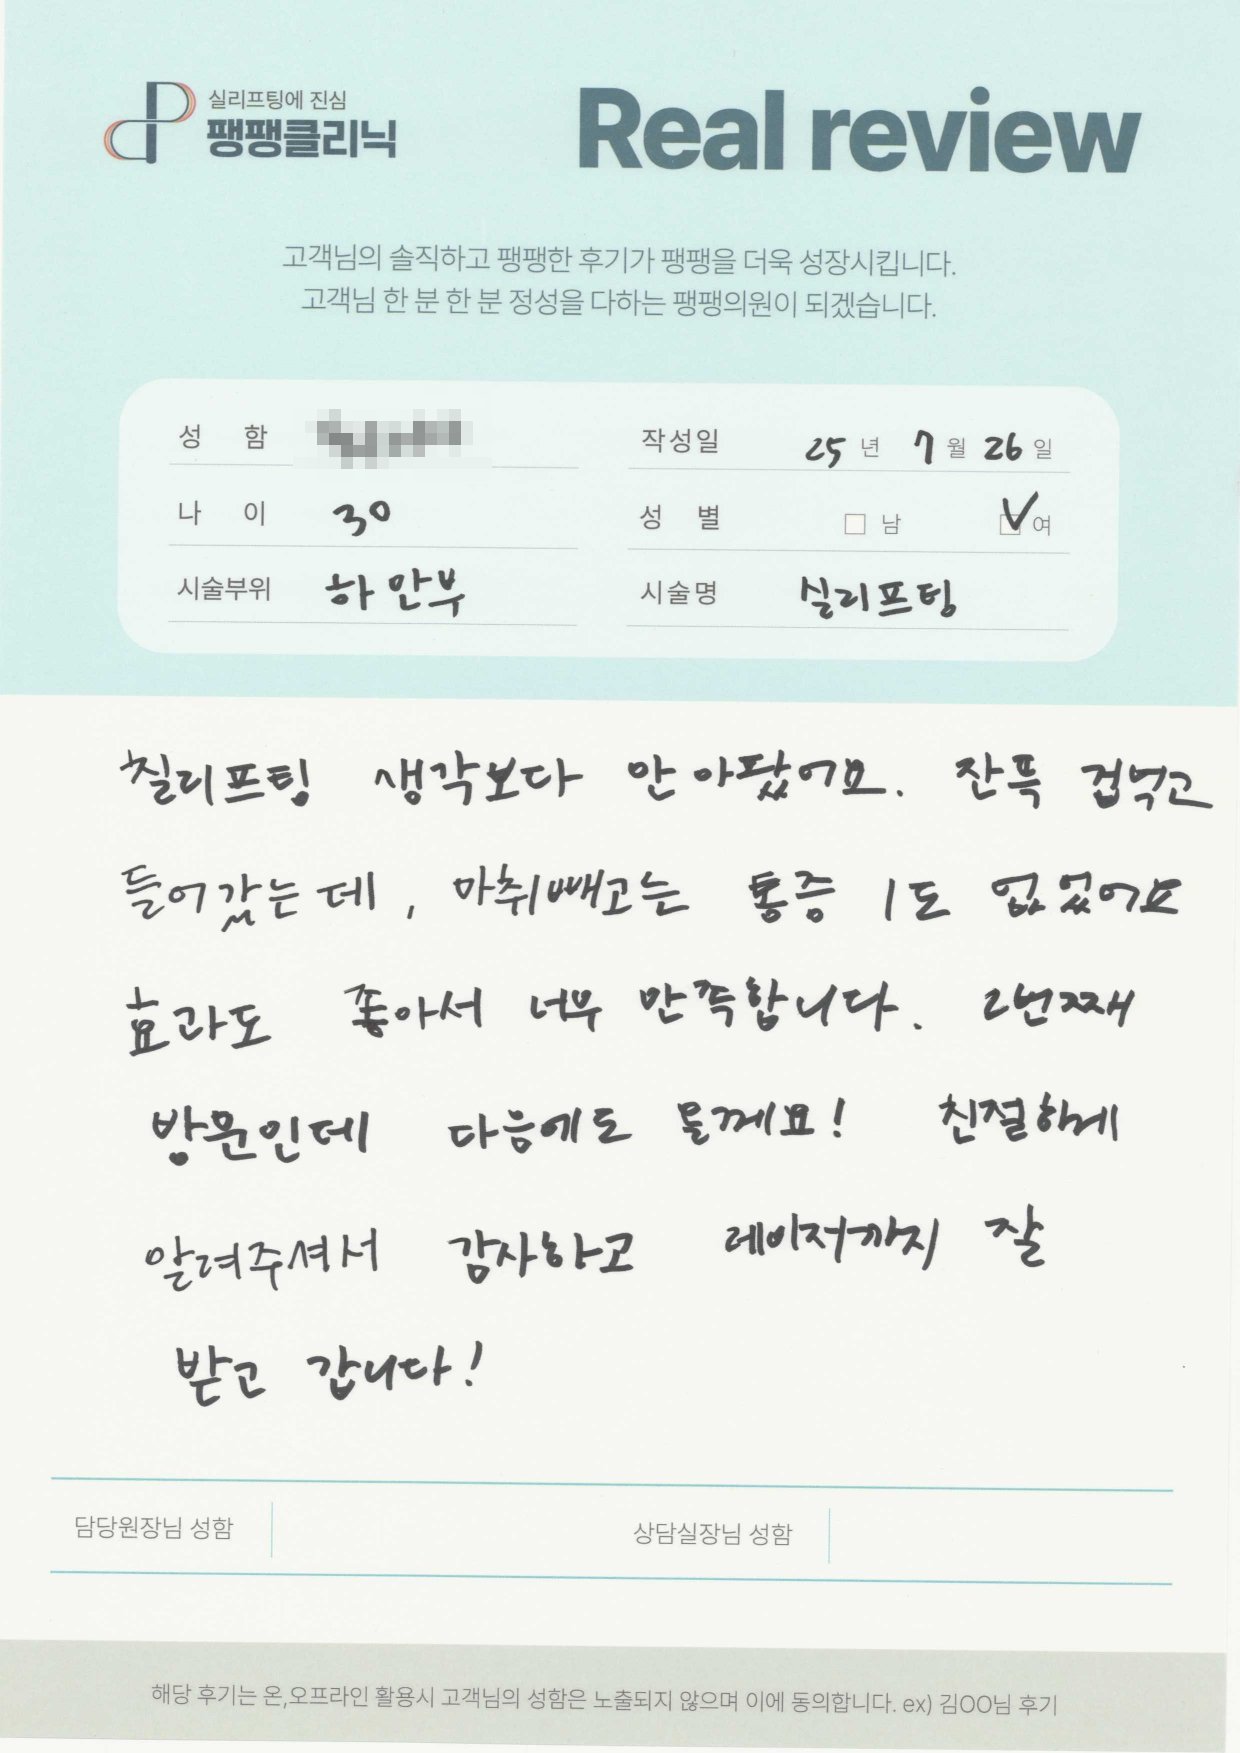 실리프팅에 진심
팽팽클리닉
Real review
고객님의 솔직하고 팽팽한 후기가 팽팽을 더욱 성장시킵니다.
고객님 한 분 한 분 정성을 다하는 팽팽의원이 되겠습니다.
성 함
작성일 25 년 7 월 26 일
나 이 30
성 별 남 여
시술부위 하안부
시술명 실리프팅
실리프팅 생각보다 안 아팠어요. 잔뜩 겁먹고
들어갔는데, 마취빼고는 통증 1도 없었어요
효과도 좋아서 너무 만족합니다. 2번째
방문인데 다음에도 올께요! 친절하게
알려주셔서 감사하고 레이저까지 잘
받고 갑니다!
담당원장님 성함
상담실장님 성함
해당 후기는 온,오프라인 활용시 고객님의 성함은 노출되지 않으며 이에 동의합니다. ex) 김OO님 후기